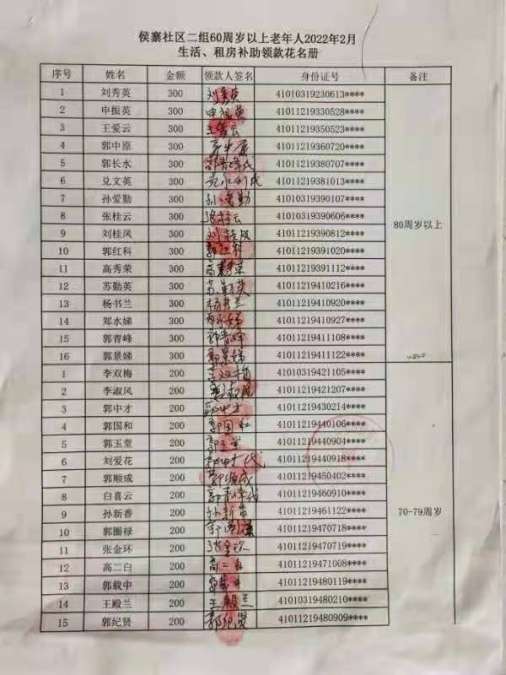 侯寨社区二组60周岁以上老年人2022年2月
生活、租房补助领款花名册
序号 姓名 金额 领款人签名 身份证号 备注
1 刘秀英 300 刘秀英 41010319230613****
2 申振英 300 申振英 41011219330528****
3 王爱云 300 王爱云 41011219350523****
4 郭中原 300 41011219360720****
5 郭长水 300 41011219380707****
6 兑文英 300 41011219381013****
7 孙爱勤 300 孙爱勤 41010319390107****
8 张桂云 300 张桂云 41011219390606****
9 刘桂凤 300 刘桂凤 41011219390812**** 80周岁以上
10 郭红科 300 郭红科 41011219391020****
11 高秀荣 300 高秀荣 41011219391112****
12 苏勤英 300 苏勤英 41011219410216****
13 杨书兰 300 杨书兰 41011219410920****
14 郑水娣 300 41011219410927****
15 郭青峰 300 郭青峰 41011219411108****
16 郭景娣 300 郭景娣 41011219411122****
1 李双梅 200 李双梅 41010319421105****
2 李淑凤 200 41011219421207****
3 郭中才 200 郭中才 41011219430214****
4 郭国和 200 41011219440106****
5 郭玉堂 200 郭玉堂 41011219440904****
6 刘爱花 200 41011219440918****
7 郭顺成 200 郭顺成 41011219450402****
8 白喜云 200 41011219460910**** 70-79周岁
9 孙新香 200 孙新香 41011219461122****
10 郭圈禄 200 41011219470718****
11 张金环 200 41011219470719****
12 高二白 200 高二白 41011219471008****
13 郭载中 200 41011219480119****
14 王殿兰 200 王殿兰 41010319480210****
15 郭纪贤 200 郭纪贤 41011219480909****